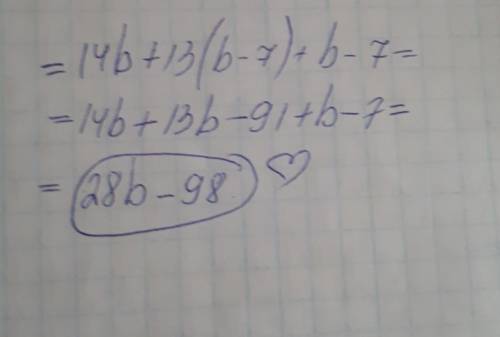 = 14b + 13(b - 7) + b - 7 =
= 14b + 13b - 91 + b - 7 =
= 28b - 98 ♡